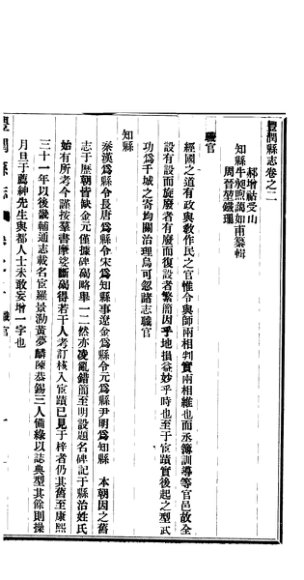 豐潤縣志卷之二
郝增祜受山
知縣牛昶煦藹如甫纂輯
周晉堃鐵珊
職官
經國之道有政與教作民之官惟令與師兩相判實兩相維也而丞簿訓導等官邑故全
設有設而旋廢者有廢而復設者繁簡因乎地損益妙乎時也至于宦蹟實後起之型武
功爲干城之寄均關治理烏可忽諸志職官
知縣
秦漢爲縣令長唐爲縣令宋爲知縣事遼金爲縣令元爲縣尹明爲知縣　本朝因之舊
志于歷朝皆缺金元僅據碑碣略舉一二然亦凌亂錯簡至明設題名碑記于縣治姓氏
始有所考今謹按羣書摩娑斷碣得若干人考訂核入宦蹟已見于梓者仍其舊至康熙
三十一年以後畿輔通志載名宦羅景泐黃夢麟陳恭錫三人備錄以誌典型其餘則操
月旦于薦紳先生與都人士未敢妄增一字也
豐潤縣志　職官